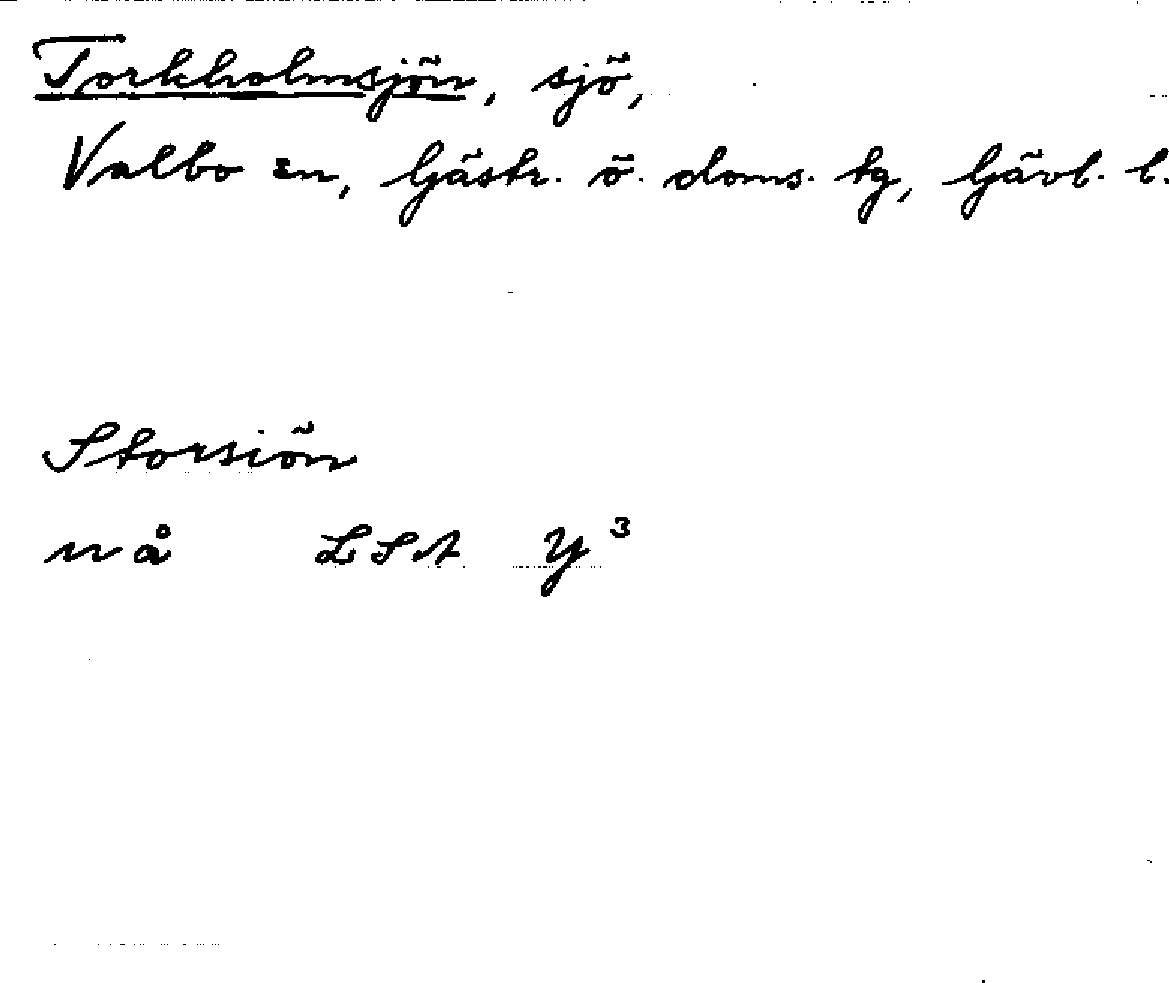 Torkholmsjön, sjö,
Valbo sn, Gästr. ö. doms. tg, Gävl. l.
Storsiön
nå LSA Y³